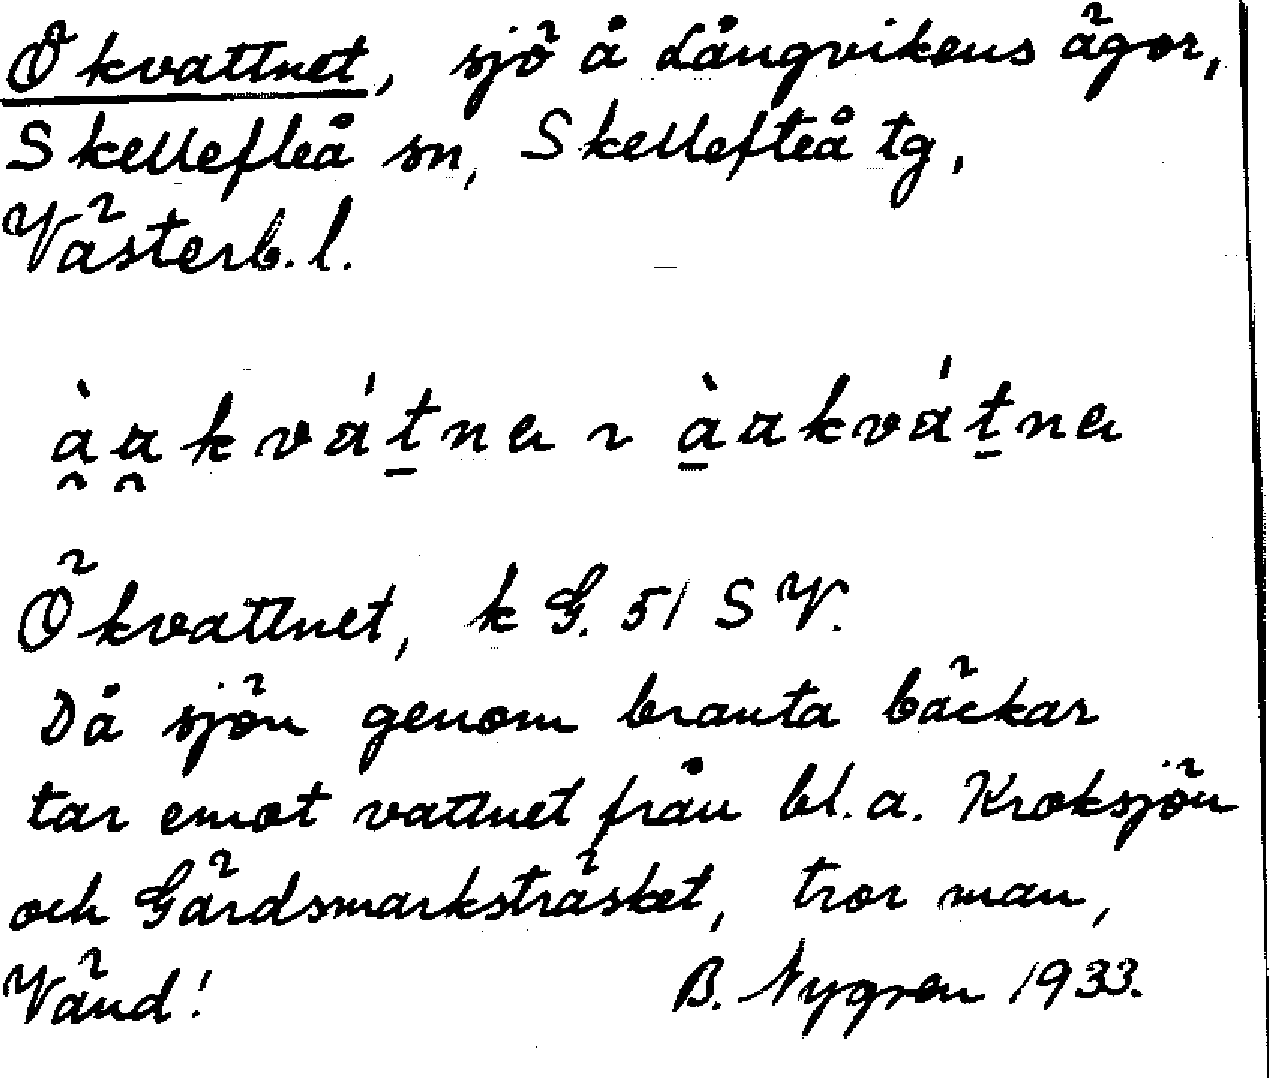 Ökvattnet, sjö å Långvikens ägor,
Skellefteå sn, Skellefteå tg,
Västerb. l.
Ökvattnet, k G. 51 SV.
Då sjön genom branta bäckar
tar emot vattnet från bl.a. Kroksjön
och Gärdsmarksträsket, tror man,
Vänd! B. Nygren 1933.